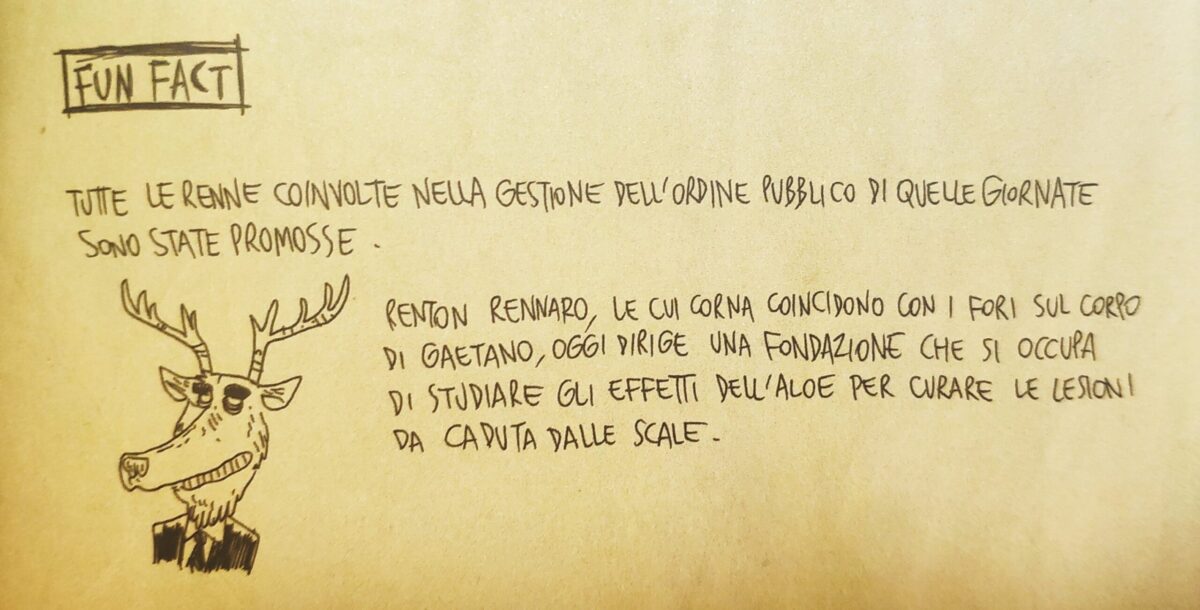 FUN FACT
TUTTE LE RENNE COINVOLTE NELLA GESTIONE DELL'ORDINE PUBBLICO DI QUELLE GIORNATE
SONO STATE PROMOSSE.
RENTON RENNARO, LE CUI CORNA COINCIDONO CON I FORI SUL CORPO
DI GAETANO, OGGI DIRIGE UNA FONDAZIONE CHE SI OCCUPA
DI STUDIARE GLI EFFETTI DELL'ALOE PER CURARE LE LESIONI
DA CADUTA DALLE SCALE.